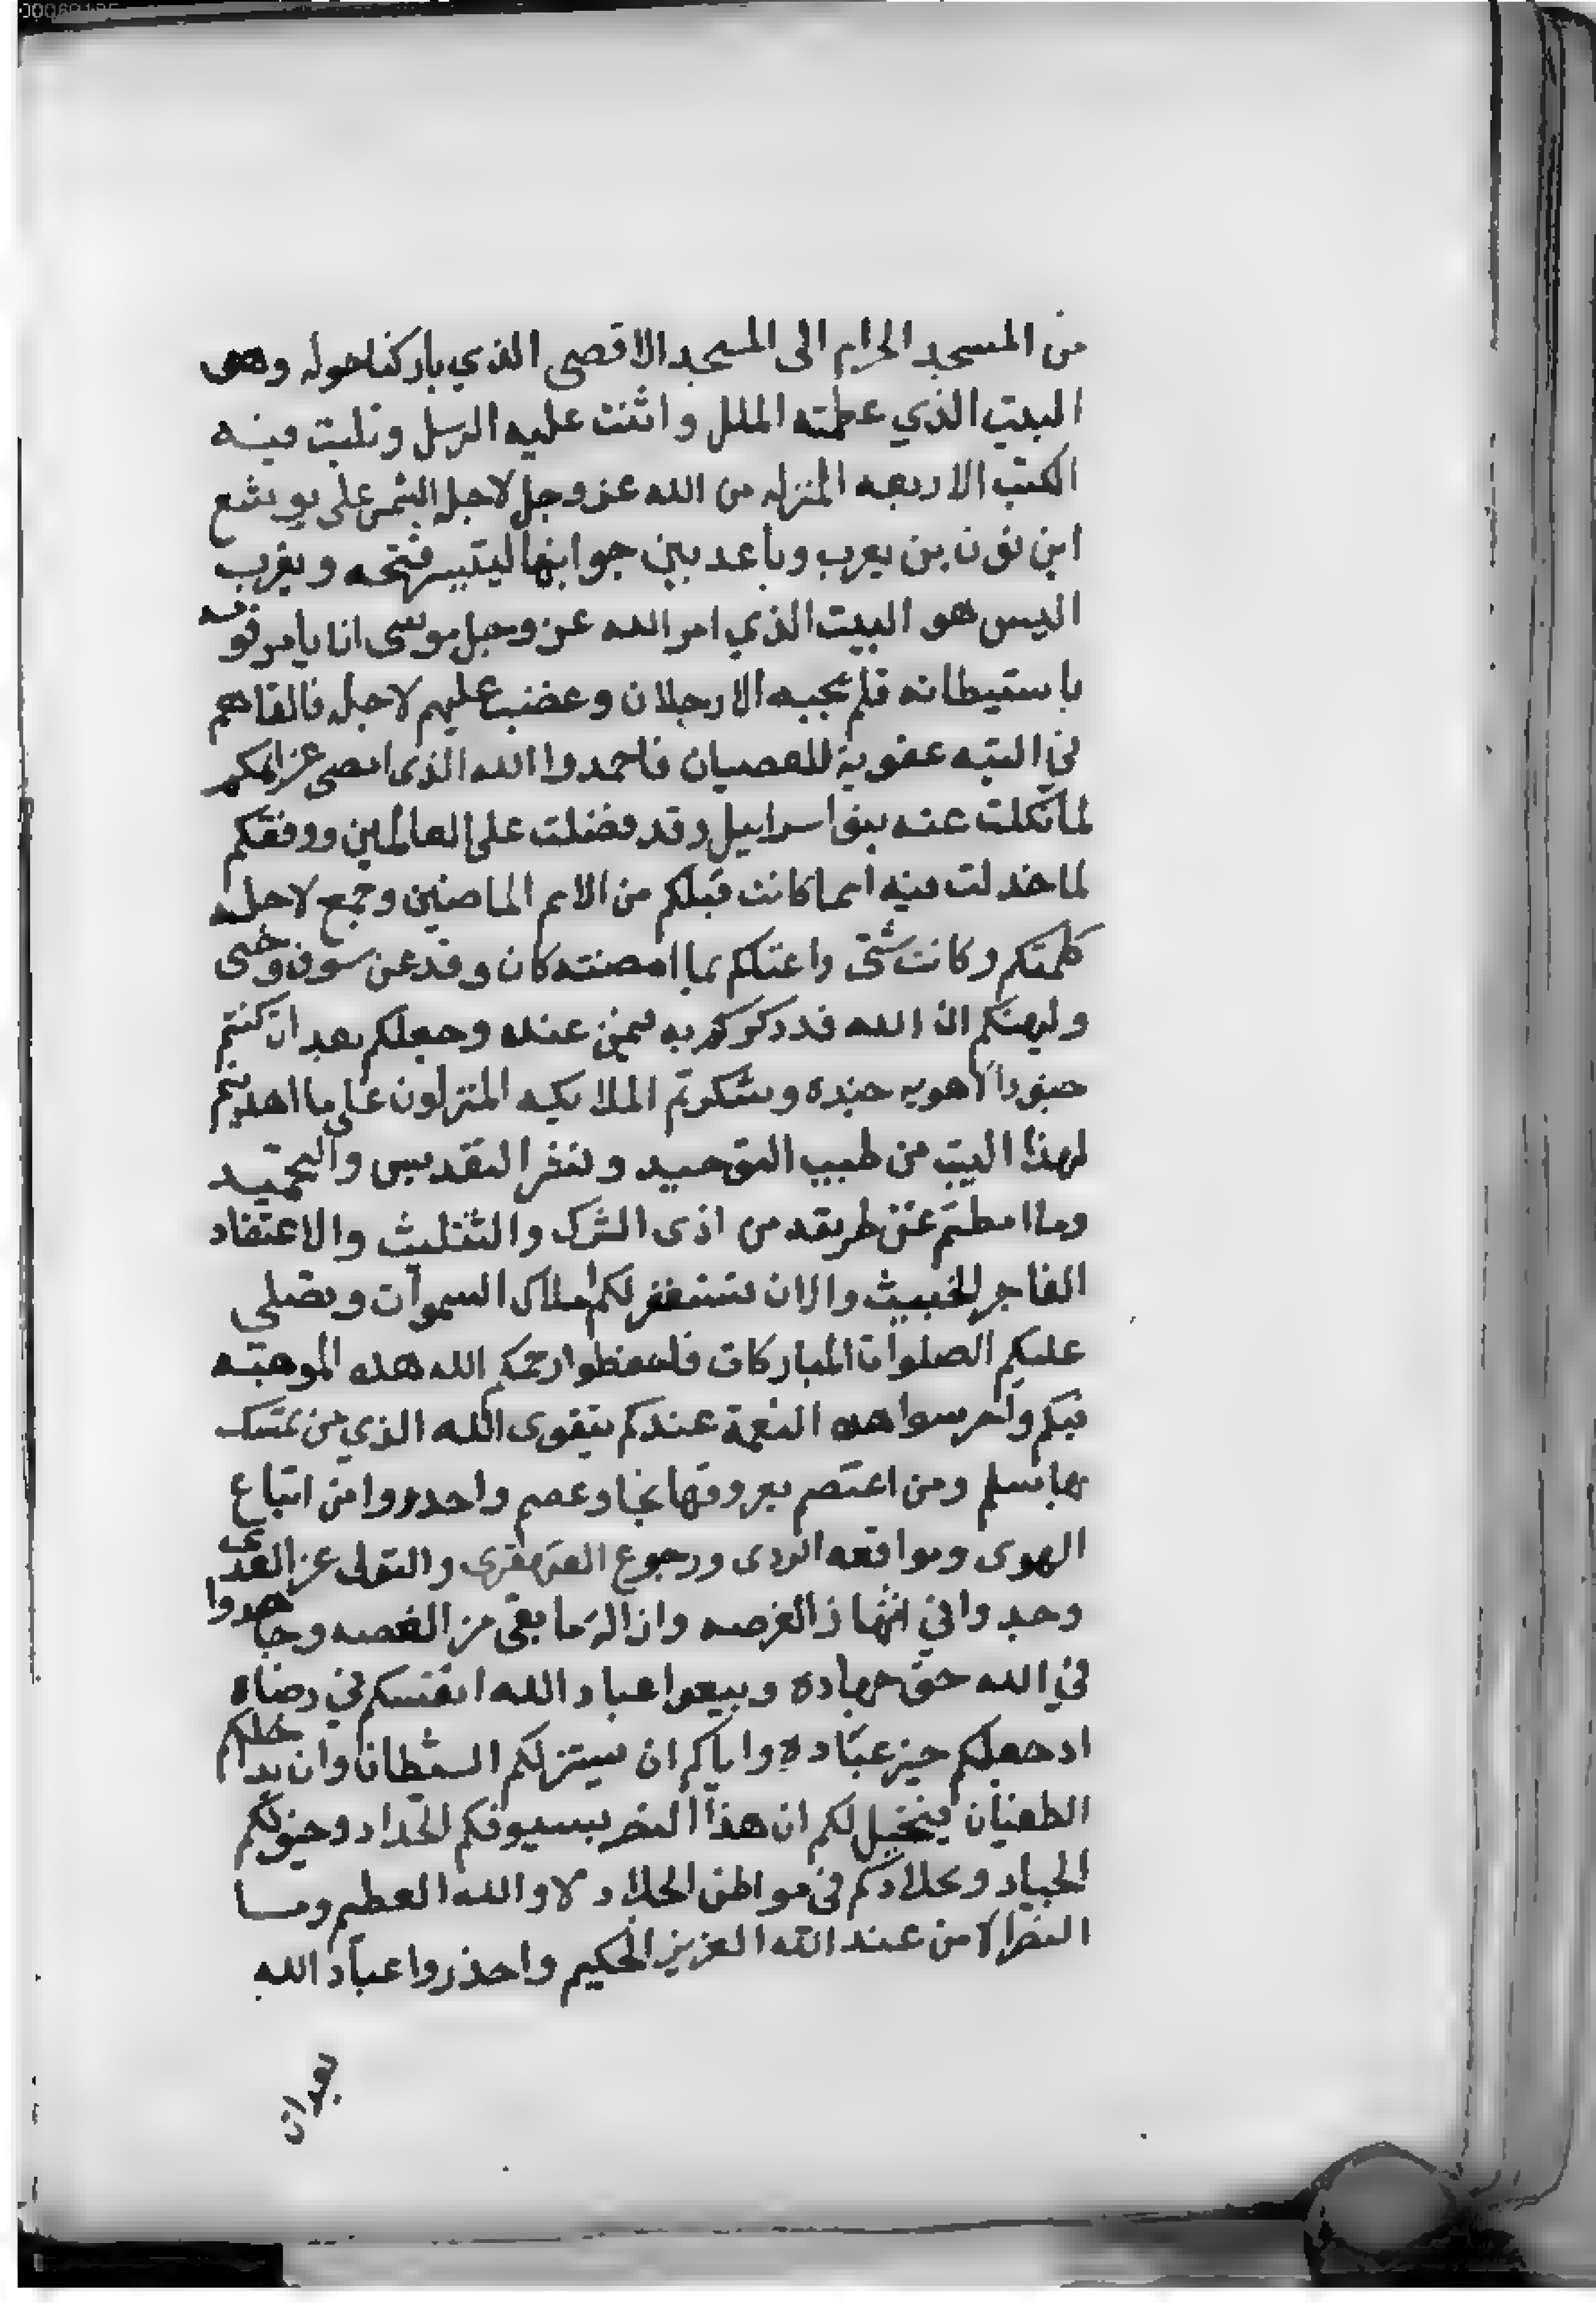 من المسجد الحرام الى المسجد الاقصى الذي باركنا حوله وهو
البيت الذي عظمته الملل واثنت عليه الرسل وتليت فيه
الكتب الاربعه المنزله من الله عز وجل لاجله الشمس على يوشع
ابن نون بن يعرب وباعد بين جوابنها ليتيسر فتحه ويغرب
اليس هو البيت الذي امر الله عز وجل موسى انا يامر قومه
باستيطانه فلم يجبه الا رجلان وغضب عليهم لاجله فالقاهم
في التيه عقوبة للعصيان فاحمدوا الله الذى امضى عزايمكم
لما نكلت عنه بنوا اسراييل وقد فضلت على العالمين ووفقكم
لما خذلت فيه امما كانت قبلكم من الامم الماضين وجمع لاجله
كلمتكم وكانت شتى واغنكم بما امضته كان وقد عن سوف وحتى
وليهنكم ان الله قد ذكركم به فيمن عنده وجعلكم بعد ان كنتم
جنودا لاهويه جنده وشكرتم الملايكه المنزلون على ما اهديتم
لهذا البيت من طيب التوحيد ونشر التقديس والتحميد
وما امطتم عن طريقه من اذى الشرك والتثليث والاعتقاد
الفاجر الخبيث والان تستغفر لكم املاك السموات وتصلي
عليكم الصلوات المباركات فاحفظوا رحمكم الله هذه الموهبه
فيكم واحرسوا هذه النعمة عندكم بتقوى الله الذي من تمسك
بها سلم ومن اعتصم بعروتها نجا وعصم واحذروا من اتباع
الهوى وموافقه الردى ورجوع القهقرى والتولى عن العدى
وخذوا في انتهاز الفرصه وازالة ما بقى من الغصه وجاهدوا
في الله حق جهاده وبيعوا عباد الله انفسكم في رضاه
اذ جعلكم خير عباده واياكم ان يستزلكم الشيطان وان يداخلكم
الطغيان فيتخيل لكم ان هذا النصر بسيوفكم الحداد وخيولكم
الجياد وبجلادكم في مواطن الجلاد لا والله العظيم وما
النصر الا من عند الله العزيز الحكيم واحذروا عباد الله
بعد ان